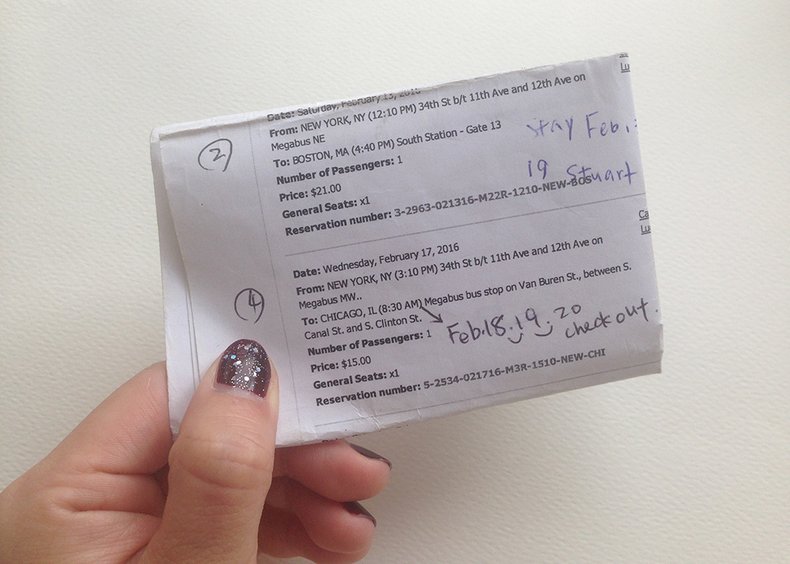 Date: Saturday, February 13, 2016
From: NEW YORK, NY (12:10 PM) 34th St b/t 11th Ave and 12th Ave on
Megabus NE
To: BOSTON, MA (4:40 PM) South Station - Gate 13
Number of Passengers: 1
Price: $21.00
General Seats: x1
Reservation number: 3-2963-021316-M22R-1210-NEW-BOS
Lu
2
stay Feb.
19 Stuart
Date: Wednesday, February 17, 2016
From: NEW YORK, NY (3:10 PM) 34th St b/t 11th Ave and 12th Ave on
Megabus MW..
To: CHICAGO, IL (8:30 AM) Megabus bus stop on Van Buren St., between S.
Canal St. and S. Clinton St.
Number of Passengers: 1
Price: $15.00
General Seats: x1
Reservation number: 5-2534-021716-M3R-1510-NEW-CHI
Ca
Lu
4
Feb.18.19.20
check out.